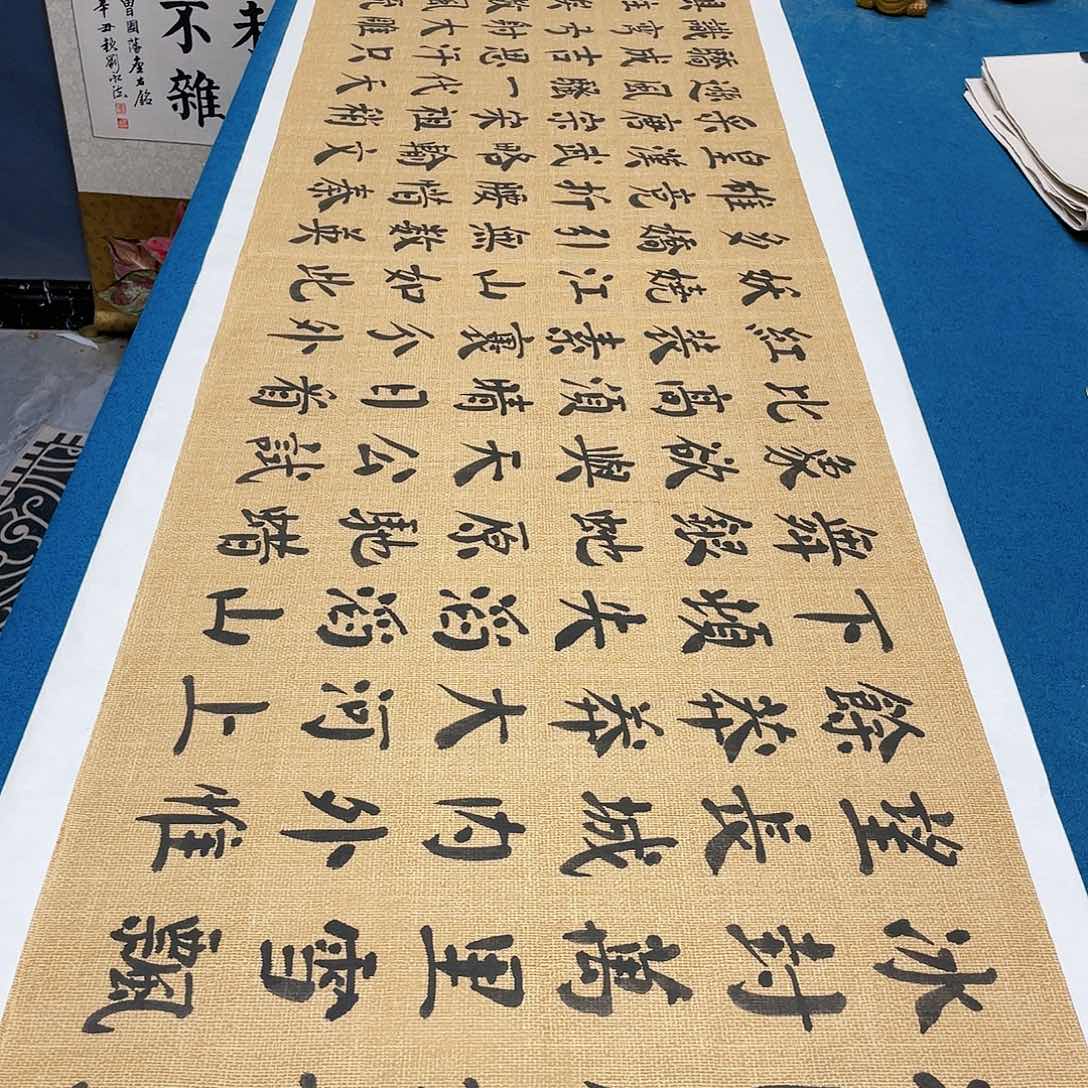 冰封萬里雪飄
望長城内外惟
餘莽莽大河上
下頓失滔滔山
舞銀蛇原馳蜡
象欲與天公試
比高須晴日看
紅裝素裹分外
妖嬈江山如此
多嬌引無數英
雄竞折腰惜秦
皇漢武略輸文
采唐宗宋祖稍
遜風騷一代天
驕成吉思汗只
識彎弓射大雕
未
不雜
曾國藩座右銘
辛丑秋劉